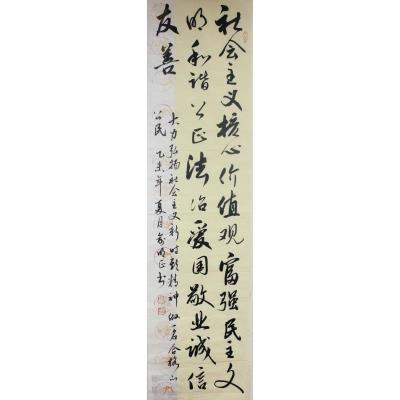 社会主义核心价值观富强民主文
明和谐公正法治爱国敬业诚信
友善
大力弘扬社会主义新时精神做一名合格
公民 乙未年夏月明正书